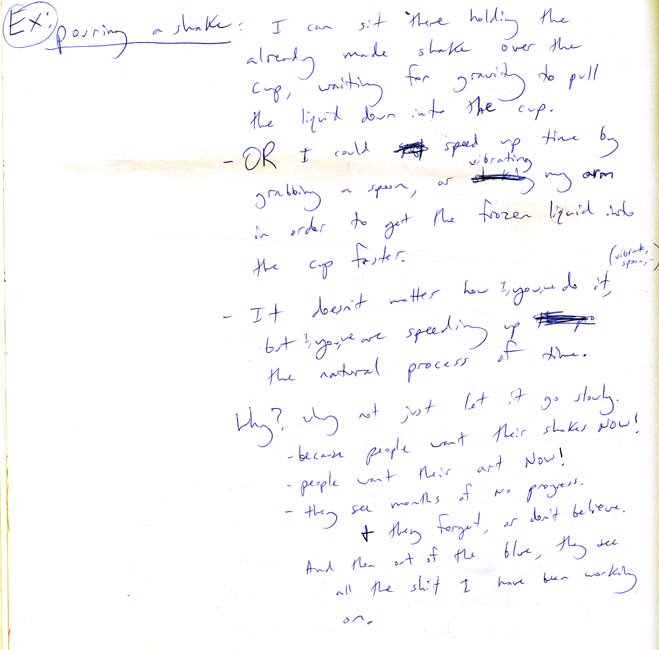 Ex: pouring a shake: I can sit there holding the
already made shake over the
cup, waiting for gravity to pull
the liquid down into the cup.
- OR I could speed up time by
vibrating
grabbing a spoon, or my arm
in order to get the frozen liquid into
the cup faster.
(vibrate, spoon, -)
- It doesn't matter how I, you, we do it,
but I, you, we are speeding up
the natural process of time.
Why? why not just let it go slowly.
- because people want their shakes NOW!
- people want their art NOW!
- they see months of no progress.
+ they forget, or don't believe.
And then out of the blue, they see
all the shit I have been working
on.